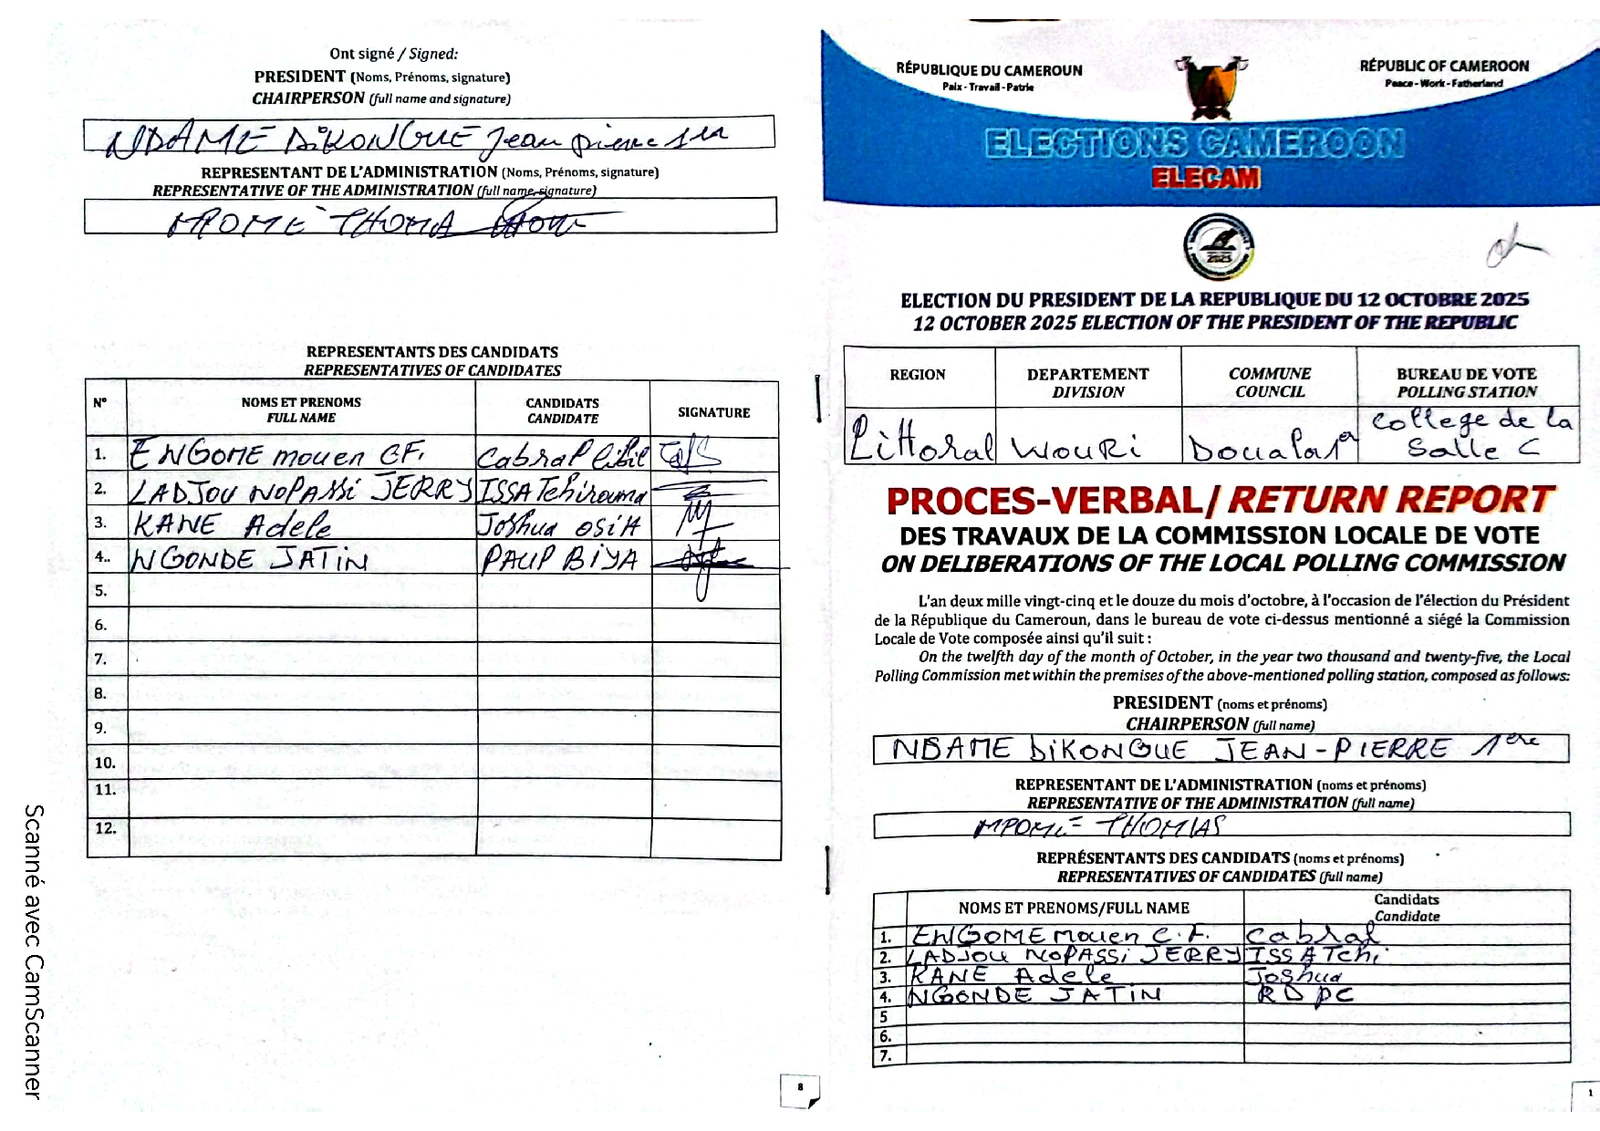 Ont signé / Signed:
PRESIDENT (Noms, Prénoms, signature)
CHAIRPERSON (full name and signature)
NDAME DiKONGUE Jean pierre
REPRESENTANT DE L'ADMINISTRATION (Noms, Prénoms, signature)
REPRESENTATIVE OF THE ADMINISTRATION (full name, signature)
MPOME THOMA
REPRESENTANTS DES CANDIDATS
REPRESENTATIVES OF CANDIDATES
N° NOMS ET PRENOMS FULL NAME CANDIDATS CANDIDATE SIGNATURE
1. ENGOME mouen CF. Cabral libii
2. LADJOU NOPASSi JERRY ISSA Tchiroma
3. KANE Adele Joshua OSiH
4.. NGONDE JATiN PAUP BiYA
5.
6.
7.
8.
9.
10.
11.
12.
8
Scanné avec CamScanner
RÉPUBLIQUE DU CAMEROUN
Paix - Travail - Patrie
RÉPUBLIC OF CAMEROON
Peace - Work - Fatherland
ELECTIONS CAMEROON
ELECAM
2025
ELECTION DU PRESIDENT DE LA REPUBLIQUE DU 12 OCTOBRE 2025
12 OCTOBER 2025 ELECTION OF THE PRESIDENT OF THE REPUBLIC
REGION DEPARTEMENT DIVISION COMMUNE COUNCIL BUREAU DE VOTE POLLING STATION
Littoral WOURi Douala 1er College de la Salle C
PROCES-VERBAL/ RETURN REPORT
DES TRAVAUX DE LA COMMISSION LOCALE DE VOTE
ON DELIBERATIONS OF THE LOCAL POLLING COMMISSION
L'an deux mille vingt-cinq et le douze du mois d'octobre, à l'occasion de l'élection du Président
de la République du Cameroun, dans le bureau de vote ci-dessus mentionné a siégé la Commission
Locale de Vote composée ainsi qu'il suit :
On the twelfth day of the month of October, in the year two thousand and twenty-five, the Local
Polling Commission met within the premises of the above-mentioned polling station, composed as follows:
PRESIDENT (noms et prénoms)
CHAIRPERSON (full name)
NDAME DiKONGUE JEAN-PIERRE 1ere
REPRESENTANT DE L'ADMINISTRATION (noms et prénoms)
REPRESENTATIVE OF THE ADMINISTRATION (full name)
MPOME THOMAS
REPRÉSENTANTS DES CANDIDATS (noms et prénoms)
REPRESENTATIVES OF CANDIDATES (full name)
NOMS ET PRENOMS/FULL NAME Candidats Candidate
1. ENGOME mouen C.F. Cabral
2. LADJOU NOPASSi JERRY ISSA Tchi
3. KANE Adele Joshua
4. NGONDE JATIN RDPC
5
6.
7.
1